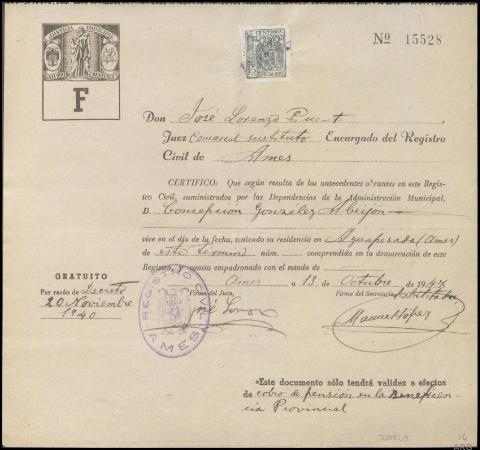 Nº 15528
F
Don José Lorenzo Puente,
Juez Comarcal sustituto Encargado del Registro
Civil de Ames
CERTIFICO: Que según resulta de los antecedentes obrantes en este Regis-
tro Civil, suministrados por las Dependencias de la Administración Municipal,
D. Concepcion González Abeijón
vive en el día de la fecha, teniendo su residencia en Agrapesada (Ames)
de este término núm. comprendida en la demarcación de este
Registro, y consta empadronado con el estado de
Ames a 13 de Octubre de 1947
GRATUITO
Por razón de Decreto
20 Noviembre
1940
Firma del Juez,
Firma del Secretario habilitado
José Lorenzo
Manuel López
REGISTRO CIVIL
AMES
«Este documento sólo tendrá validez a efectos
de cobro de pensión en la Beneficen-
cia Provincial